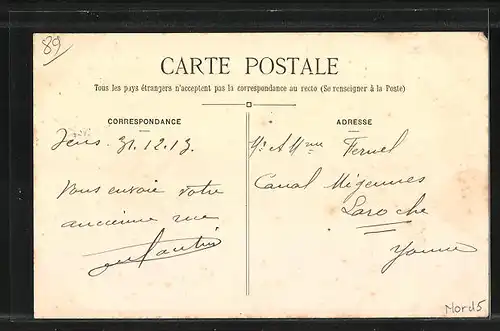 89
CARTE POSTALE
Tous les pays étrangers n'acceptent pas la correspondance au recto (Se renseigner à la Poste)
CORRESPONDANCE
Sens 31.12.13.
Vous envoie votre
ancienne rue
ADRESSE
Mr et Mme Fernel
Canal Migennes
Laroche
Yonne
Mord5